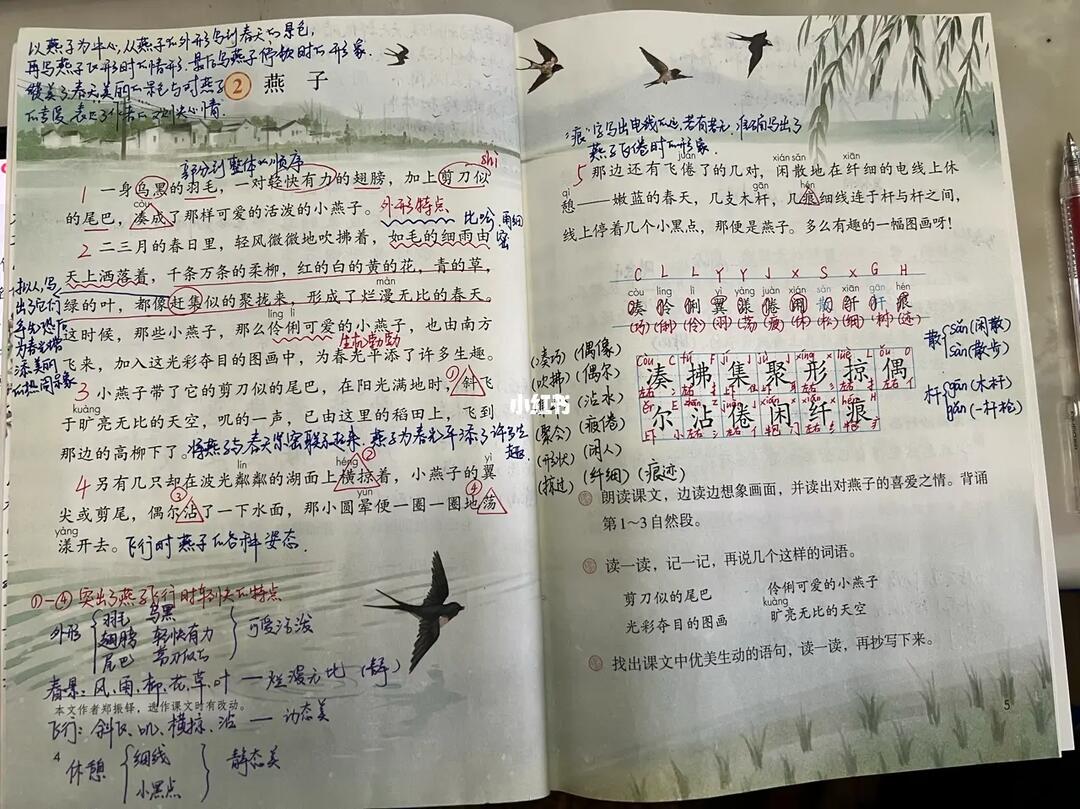 以燕子为中心,从燕子的外形写到春天的景色,
再写燕子飞行时的情形.最后写燕子停歇时的形象.
赞美了春天美丽的景色与对燕子
的喜爱,表达了作者的愉快心情.
2 燕子
部分到整体的顺序
shì
1 一身乌黑的羽毛,一对轻快有力的翅膀,加上剪刀似
còu
的尾巴,凑成了那样可爱的活泼的小燕子。 外形特点
比喻,雨细密
2 二三月的春日里,轻风微微地吹拂着,如毛的细雨由
天上洒落着,千条万条的柔柳,红的白的黄的花,青的草,
màn
绿的叶,都像赶集似的聚拢来,形成了烂漫无比的春天。
líng lì
这时候,那些小燕子,那么伶俐可爱的小燕子,也由南方
生机勃勃
飞来,加入这光彩夺目的图画中,为春光平添了许多生趣。
拟人,写
出了它们
为春光增
添美丽
的热闹景象
3 小燕子带了它的剪刀似的尾巴,在阳光满地时,①斜飞
kuàng
于旷亮无比的天空,叽的一声,已由这里的稻田上,飞到
那边的高柳下了。将燕子与春天紧密联系起来,燕子为春光平添了许多生趣.
lín héng ② yì
4 另有几只却在波光粼粼的湖面上横掠着,小燕子的翼
③ yùn ④
尖或剪尾,偶尔沾了一下水面,那小圆晕便一圈一圈地荡
yàng
漾开去。飞行时燕子的各种姿态.
①-④ 突出了燕子飞行时轻快的特点
外形 羽毛 乌黑
翅膀 轻快有力 可爱活泼
尾巴 剪刀似的
春景:风、雨、柳、花、草、叶 — 烂漫无比(静)
本文作者郑振铎,选作课文时有改动。
飞行:斜飞、叽、横掠、沾 — 动态美
4
休憩 细线 静态美
小黑点
"痕"字写出电线的远,若有若无,准确写出了
燕子飞倦时的形象.
juàn xián sǎn xiān
5 那边还有飞倦了的几对,闲散地在纤细的电线上休
qì gān hén
憩——嫩蓝的春天,几支木杆,几痕细线连于杆与杆之间,
线上停着几个小黑点,那便是燕子。多么有趣的一幅图画呀!
C L L Y Y J X S X G H
còu líng lì yì yàng juàn xián sǎn xiān gān hén
凑 伶 俐 翼 漾 倦 闲 散 纤 杆 痕
(巧)(俐)(伶)(羽)(荡)(疲)(休)(松)(细)(树)(迹)
散 sǎn(闲散)
sàn(散步)
杆 gān(木杆)
gǎn(一杆枪)
(凑巧)(偶像)
(吹拂)(偶尔)
(沾水)
(聚会)(疲倦)
(形状)(闲人)
(掠过)(纤细)(痕迹)
凑 拂 集 聚 形 掠 偶
尔 沾 倦 闲 纤 痕
朗读课文,边读边想象画面,并读出对燕子的喜爱之情。背诵
第1~3自然段。
读一读,记一记,再说几个这样的词语。
剪刀似的尾巴 伶俐可爱的小燕子
kuàng
光彩夺目的图画 旷亮无比的天空
找出课文中优美生动的语句,读一读,再抄写下来。
5
小红书